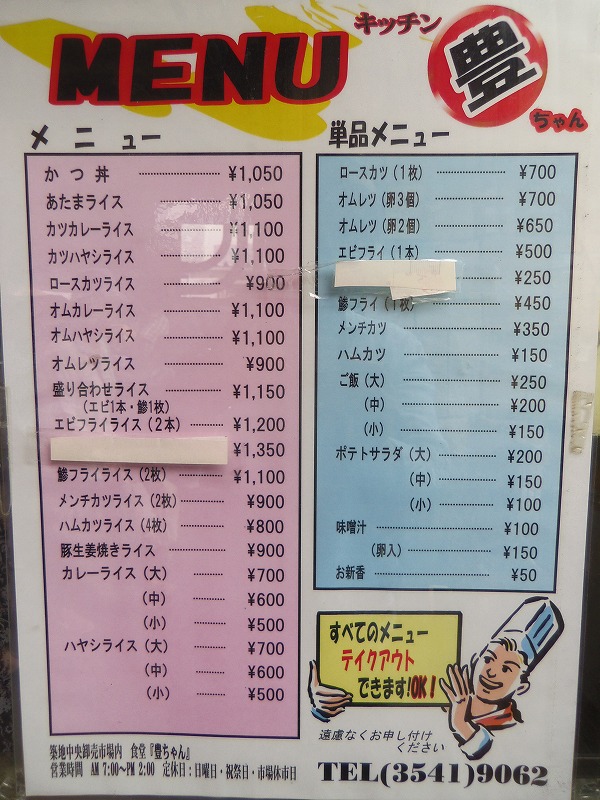 MENU
キッチン
豊
ちゃん
メニュー
かつ丼 ¥1,050
あたまライス ¥1,050
カツカレーライス ¥1,100
カツハヤシライス ¥1,100
ロースカツライス ¥900
オムカレーライス ¥1,100
オムハヤシライス ¥1,100
オムレツライス ¥900
盛り合わせライス ¥1,150
(エビ1本・鯵1枚)
エビフライライス(2本) ¥1,200
¥1,350
鯵フライライス(2枚) ¥1,100
メンチカツライス(2枚) ¥900
ハムカツライス(4枚) ¥800
豚生姜焼きライス ¥900
カレーライス(大) ¥700
(中) ¥600
(小) ¥500
ハヤシライス(大) ¥700
(中) ¥600
(小) ¥500
単品メニュー
ロースカツ(1枚) ¥700
オムレツ(卵3個) ¥700
オムレツ(卵2個) ¥650
エビフライ(1本) ¥500
¥250
鯵フライ(1枚) ¥450
メンチカツ ¥350
ハムカツ ¥150
ご飯(大) ¥250
(中) ¥200
(小) ¥150
ポテトサラダ(大) ¥200
(中) ¥150
(小) ¥100
味噌汁 ¥100
(卵入) ¥150
お新香 ¥50
すべてのメニュー
テイクアウト
できます!OK!
遠慮なくお申し付け
ください
築地中央卸売市場内 食堂『豊ちゃん』
営業時間 AM 7:00~PM 2:00 定休日:日曜日・祝祭日・市場休市日
TEL(3541)9062